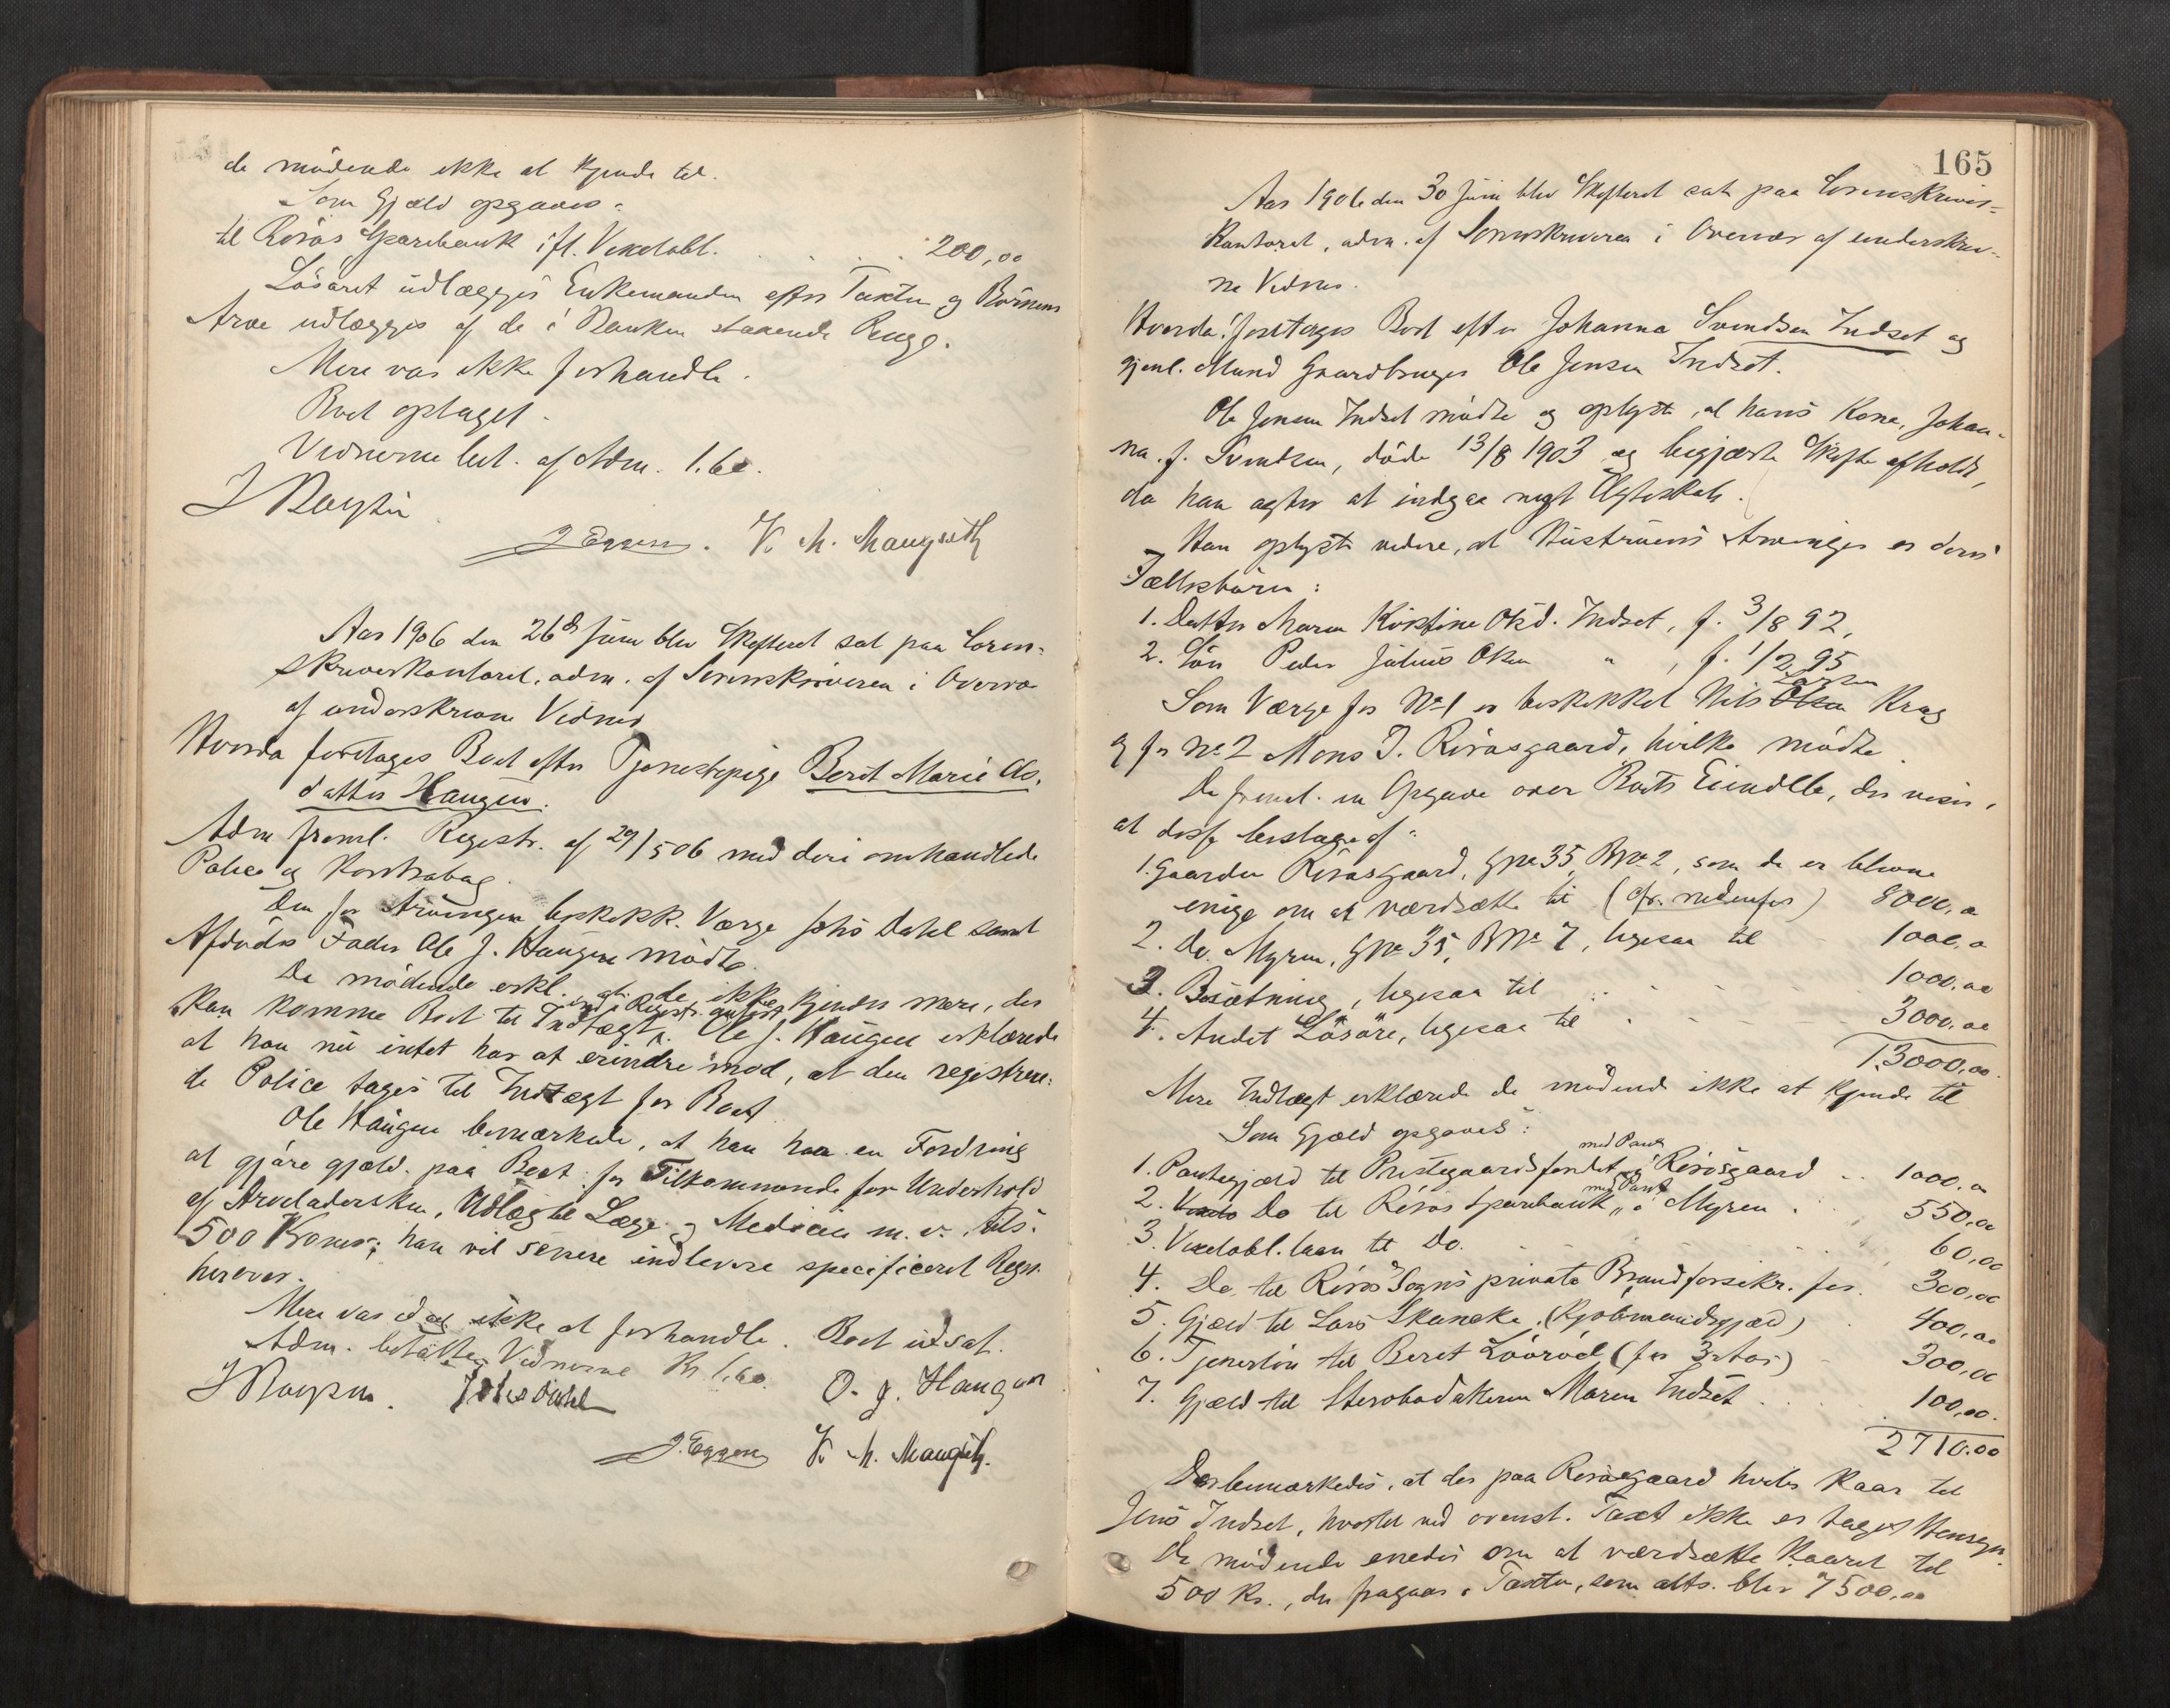 de mödende ikke at kjende til.
Som Gjæld opgaves:
til Röros Sparebank ifl. Vexelobl. . . . . 200,00
Lösöret udlægges Enkemanden efter Taxten og Börnenes
Arve udlægges af de i Banken staaende Penge.
Mere var ikke forhandle.
Boet optaget.
Vidnerne bet. af Adm. 1.60.
J Eggen. K. M. Mangseth
Aar 1906 den 26de Juni blev Skifteret sat paa Soren-
skriverkontoret, adm. af Sorenskriveren i Overvær
af underskrevne Vidner
Hvorda foretages Boet efter Tjenestepige Berit Marie Ols-
datter Haugen.
Adm freml. Registr. af 29/5 06 med deri omhandlede
Police og Kontrabog.
Den for Arvingen beskikk. Værge Johs Dahl samt
Afdödes Fader Ole J. Haugen mödte.
De mödende erkl. at de ikke kjender mere, der
kan komme Boet til Indtægt, end i Registr. anfört. Ole J. Haugen erklærede
at han nu intet har at erindre mod, at den registrere-
de Police tages til Indtægt for Boet
Ole Haugen bemærkede, at han har en Fordring
at gjöre gjæld. paa Boet for Tilkommende for Underhold
af Arveladersken, Udlæg til Læge og Medicin m. v.
500 Kroner; han vil senere indlevere specificeret Regn.
herover.
Mere var da ikke at forhandle. Boet udsat.
Adm. betalte Vidnerne Kr 1.60.
Johs Dahl O. J. Haugen
J. Eggen K. M. Mangseth.
165
Aar 1906 den 30 Juni blev Skifteret sat paa Sorenskriver-
kontoret, adm. af Sorenskriveren i Overvær af underskrev-
ne Vidner.
Hvorda: foretages Boet efter Johanna Svendsen Indset og
gjenl. Mand Gaardbruger Ole Jensen Indset.
Ole Jensen Indset mödte og oplyste, at hans Kone, Johan-
na f. Svendsen, döde 13/8 1903 og begjærte Skifte afholdt,
da han agter at indgaa nyt Ægteskab.
Han oplyste videre, at Hustruens Arvinger er deres
Fællesbörn:
1. Datter Maren Kirstine Olsd. Indset, f. 3/8 92,
2. Sön Peder Julius Olsen " , f. 1/2 95
Som Værge for No 1 er beskikket Nils Olsen Larsen Krag
og for No 2 Mons J. Rörosgaard, hvilke mödte.
De freml. en Opgave over Boets Eiendele, der viser,
at disse bestaar af:
1. Gaarden Rörosgaard, Gno 35, Bno 2, som de er blevne
enige om at værdsætte til (cfr. nedenfor) 8000,00
2. Do. Myren, Gno 35, Bno 7, ligesaa til 1000,00
3. Besætning, ligesaa til . . . . . 1000,00
4. Andet Lösöre, ligesaa til . . . . . 3000,00
13000,00.
Mere Indtægt erklærede de mödende ikke at kjende til
Som Gjæld opgaves:
1. Pantegjæld til Prestegaardsfondet med Pant i Rörosgaard . . 1000,00
2. Do til Röros Sparebank med Pant i Myren . 550,00
3. Vexelobl.laan til Do. . . . . 60,00
4. Do. til Röros Sogns private Brandforsikr. for. 300,00
5. Gjæld til Lars Skancke, (Kjöbmandsgjæld) . 400,00
6. Tjenerlön til Beret (for 3 Aar) 300,00
7. Gjæld til Sterbodatteren Maren Indset . . . 100,00.
2710.00
Der bemærkedes, at der paa Rörosgaard hviler Kaar til
Jens Indset, hvortil ved ovenst. Taxt ikke er taget Hensyn.
De mödende enedes om at værdsætte Kaaret til
500 Kr., der fragaar i Taxten, som altsaa blir 7500,00